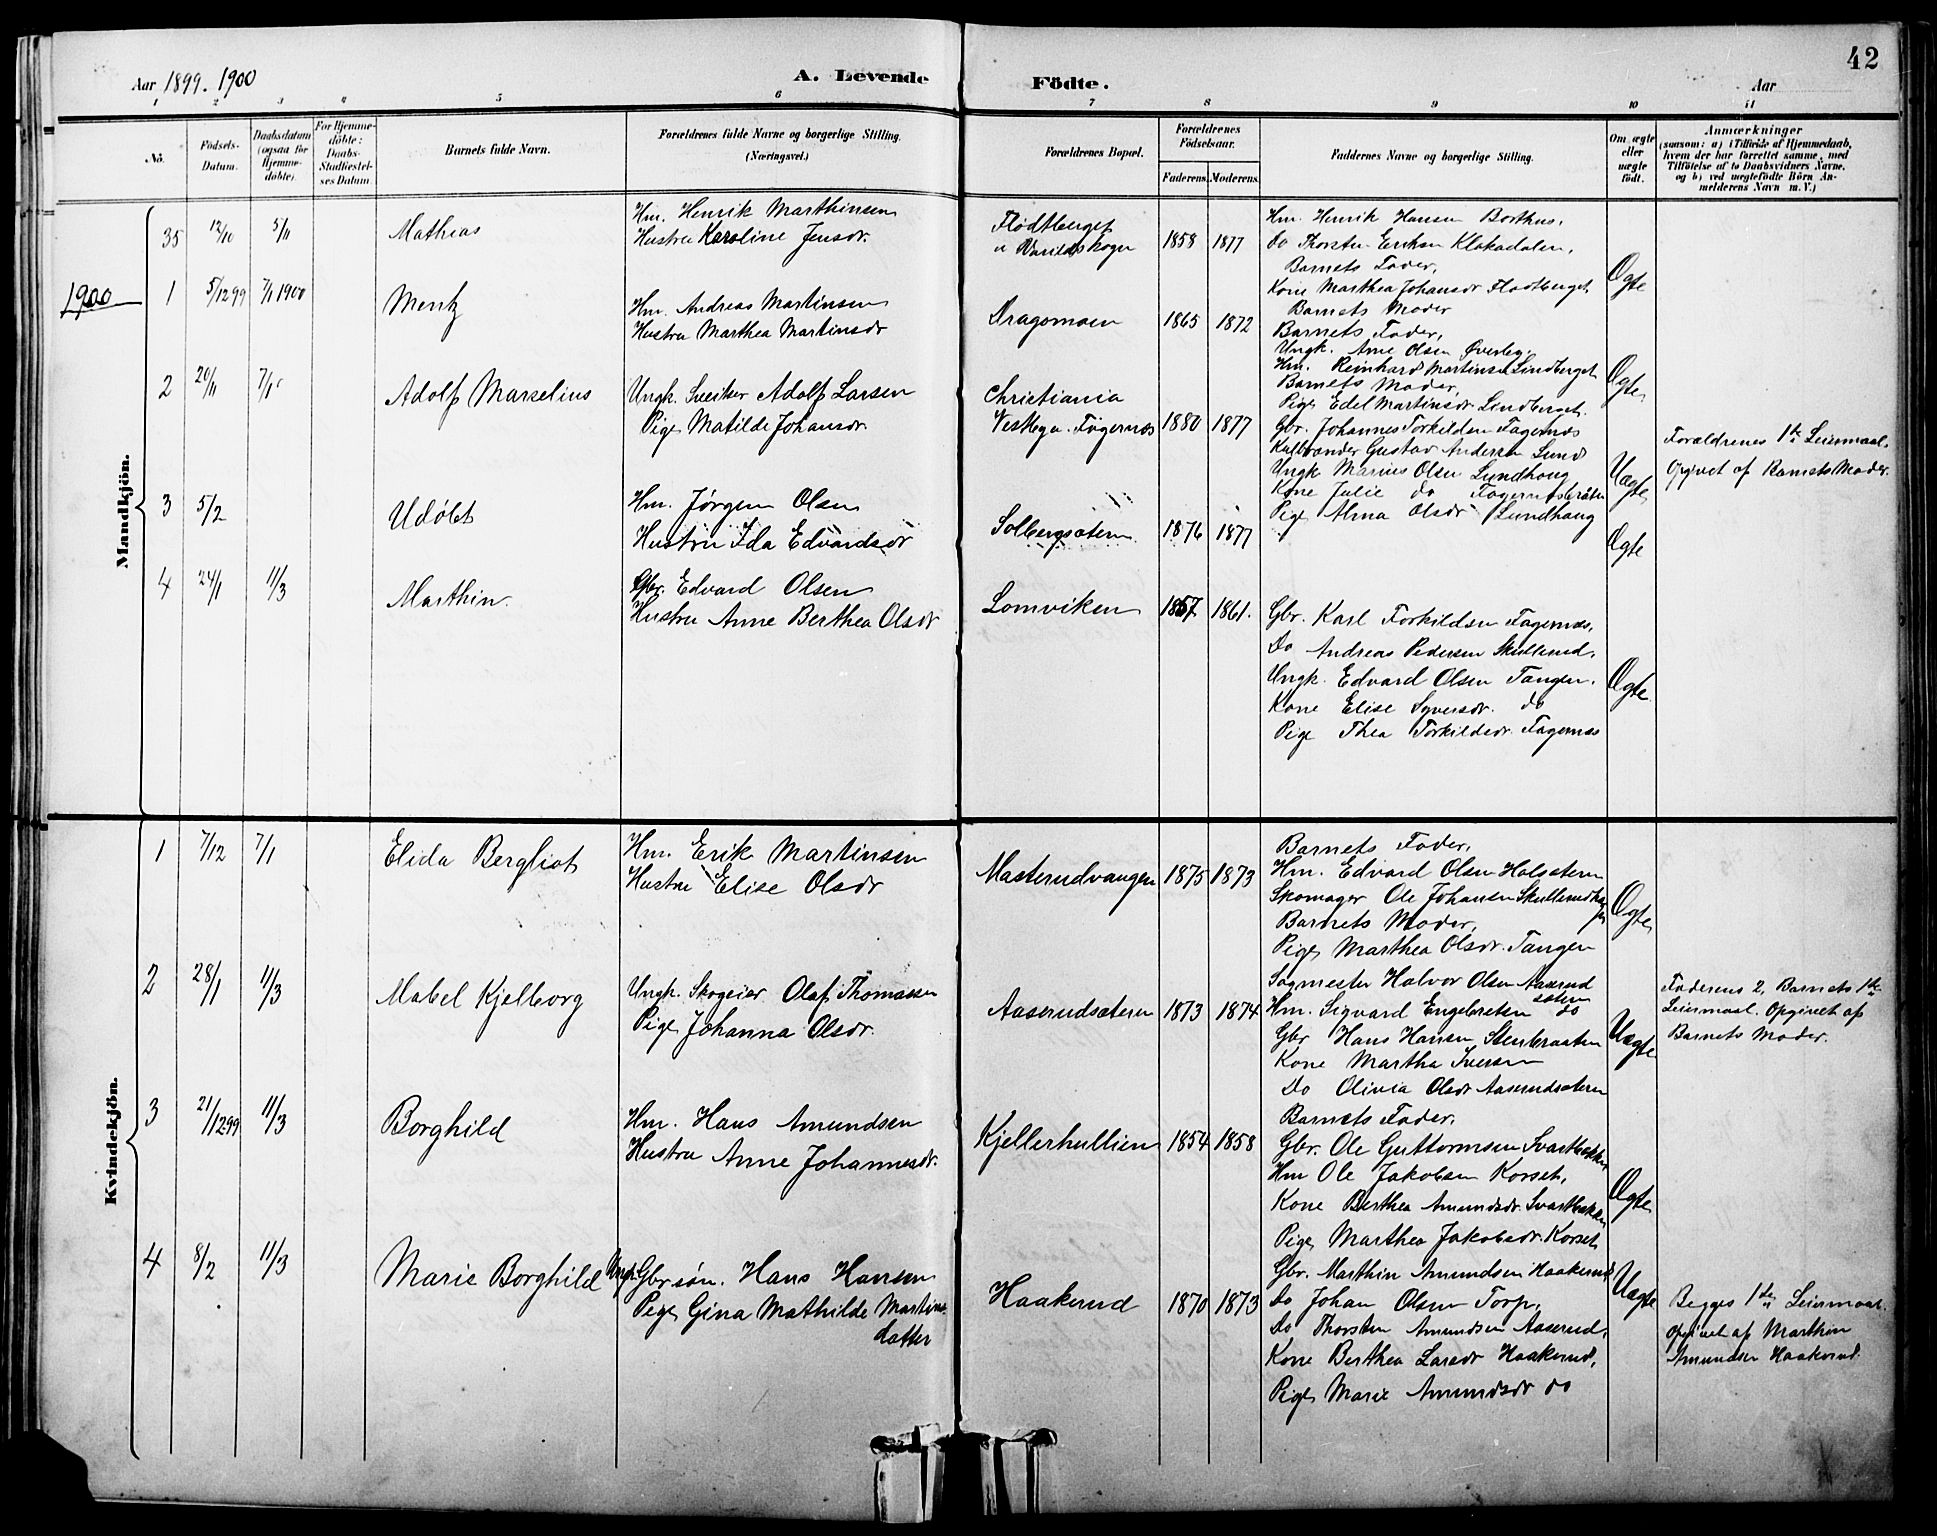 42
Aar 1899. 1900
A. Levende Födte.
Aar
1 2 3 4 5 6 7 8 9 10 11
No.
Födsels-Datum.
Daabsdatum (ogsaa for Hjemmedöbte).
For Hjemmedöbte: Daabs-Stadfæstelses Datum.
Barnets fulde Navn.
Forældrenes fulde Navne og borgerlige Stilling. (Næringsvei.)
Forældrenes Bopæl.
Forældrenes Födselsaar.
Faderens. Moderens.
Faddernes Navne og borgerlige Stilling.
Om ægte eller uægte födt.
Anmærkninger
(saasom: a) i Tilfælde af Hjemmedaab, hvem der har forrettet samme, med Tilföielse af to Daabsvidners Navne, og b) ved uægtefödte Börn Anmelderens Navn m. V.)
Mandkjön.
35 12/10 5/11 Mathias
Hm. Henrik Marthinsen
Hustru Karoline Jensdr.
Flödtberget
u Varildskogen
1858 1877
Hm. Henrik Hansen Borthus,
Do Thorsten Eriksen Klakadalen,
Barnets Fader,
Kone Marthea Johansdr Flodtberget
Barnets Moder
Ægte
1900
1 5/12 99 7/1 1900 Mentz
Hm. Andreas Martinsen
Hustru Marthea Martinsdr
Dragomoen 1865 1872
Barnets Fader,
Ungk. Arne Olsen Øverby.
Hm. Reinhard Martinsen Lindberget
Barnets Moder,
Pige Edel Martinsdr Lindberget.
Ægte
2 20/11 7/1 Adolf Marselius
Ungk. Sveitser Adolf Larsen
Pige Matilde Johansdr.
Christiania
Vestbya. Fagernæs
1880 1877
Gbr. Johannes Torkildsen Fagernæs
Kulbrænder Gustav Andersen Lund
Ungk Marius Olsen Lundhaug
Kone Julie do Fagernesbråten
Pige Alma Olsdr Lundhaug
Uægte
Forældrenes 1ste Leiermaal.
Opgivet af Barnets Moder.
3 5/2 Udöbt
Hm. Jørgen Olsen
Hustru Ida Edvardsdr
Solbergsæteren 1876 1877
Ægte
4 24/1 11/3 Marthin.
Gbr. Edvard Olsen
Hustru Anne Berthea Olsdr
Lomviken 1857. 1861.
Gbr. Karl Torkildsen Fagernæs,
Do Andreas Pedersen Skullerud,
Ungk. Edvard Olsen Tangen.
Kone Elise Syversdr. do
Pige Thea Torkildsdr. Fagernæs
Ægte
Kvindekjön.
1 7/12 7/1 Elida Bergliot
Hm. Erik Martinsen
Hustru Elise Olsdr
Masterudvangen 1875 1873
Barnets Fader,
Hm. Edvard Olsen Holsæteren
Skomager Ole Johansen Skullerud
Barnets Moder,
Pige Marthea Olsdr. Tangen
Ægte
2 28/1 11/3 Mabel Kjelborg
Ungk. Skogeier Olaf Thomassen
Pige Johanna Olsdr.
Aaserudsæteren 1873 1874
Sagmester Halvor Olsen Aaserudsæteren
Hm. Sigvard Engebretsen do
Gbr Hans Hansen Stenbraaten
Kone Martha Iversen
Do Olivia Olsdr Aaserudsæteren
Uægte
Faderens 2, Barnets 1ste
Leiermaal. Opgivet af
Barnets Moder.
3 21/12 99 11/3 Borghild
Hm. Hans Amundsen
Hustru Anne Johannesdr.
Kjellerhullien 1854 1858
Barnets Fader.
Gbr. Ole Guttormsen Svartbækken
Hm Ole Jakobsen Korset,
Kone Berthea Amundsdr. Svartbækken
Pige Marthea Jakobsdr. Korset
Ægte
4 8/2 11/3 Marie Borghild
Ungk. Gbr søn. Hans Hansen
Pige Gina Mathilde Martins
datter
Haakerud 1870 1873
Gbr. Marthin Amundsen Haakerud
Do Johan Olsen Torp,
Do Thorsten Amundsen Aaserud,
Kone Berthea Larsdr Haakerud,
Pige Marie Amundsdr do
Uægte
Begges 1ste Leiermaal.
opgivet af Marthin
Amundsen Haakerud.